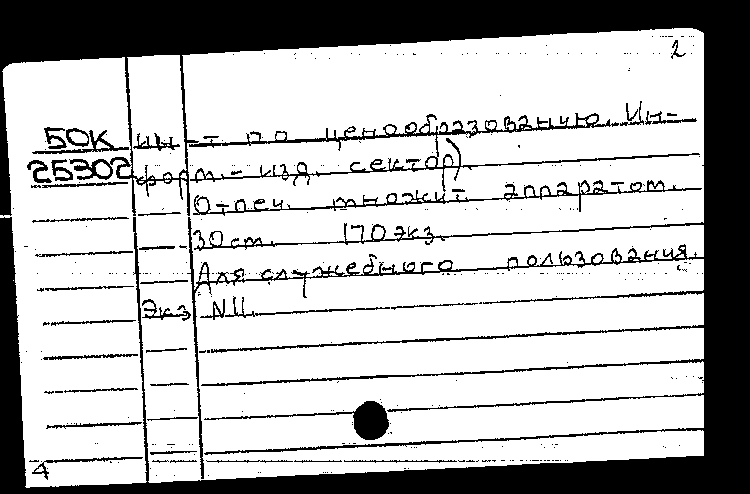 2
БОК ин-т по ценообразованию. Ин-
25302 форм.-изд. сектор).
Отпеч. множит. аппаратом.
30 ст. 170 экз.
Для служебного пользования.
Экз N11.
4